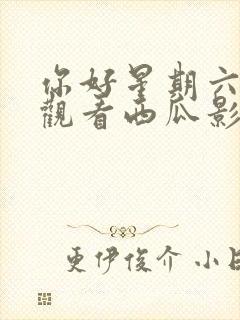 你好星期六
觀看西瓜影
更伊俊介 小日